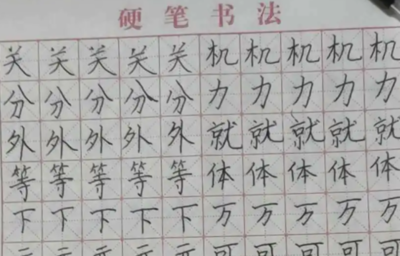 硬笔书法
关关关关关机机机机机
分分分分分力力力力力
外外外外外就就就就就
等等等等等体体体体体
下下下下下万万万万万
可可可可可